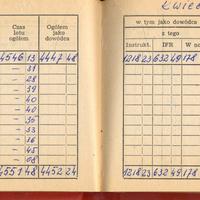 Kwiec
Czas lotu ogółem
Ogółem jako dowódca
w tym jako dowódca
z tego
Instrukt. IFR W no
4546 13 4447 48 1218 23 632 49 178
— 31
— 28
— 39
— 40
— 40
— 35
— 33
— 36
— 45
— 08
4551 48 4452 24 1218 23 632 49 178